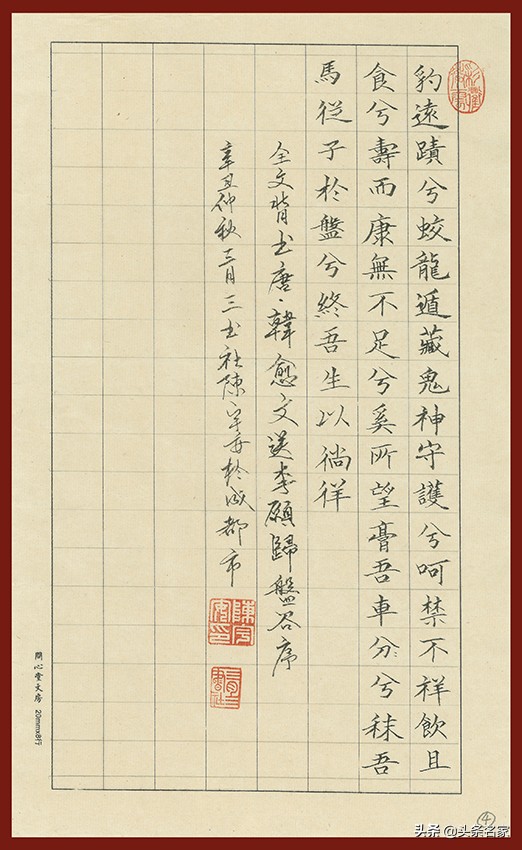 豹遠蹟兮蛟龍遁藏鬼神守護兮呵禁不祥飲且
食兮壽而康無不足兮奚所望膏吾車分兮秣吾
馬從子於盤兮終吾生以徜徉
全文背书唐·韓愈文送李願歸盤谷序
辛丑仲秋三月三书社陳於成都市
問心堂文房 20mmx8行
④
头条 @头条名家